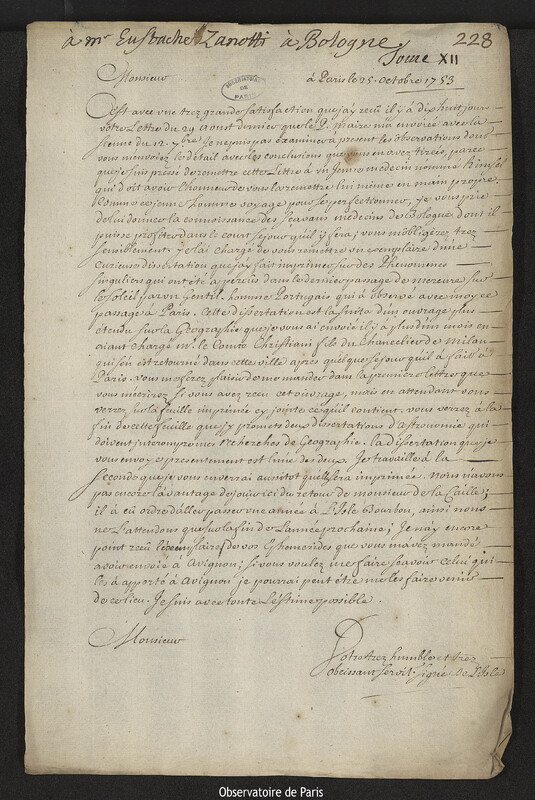 à Mr Eustache Zanotti à Bologne
228
Tome XII
Monsieur
à Paris le 25. octobre 1753
OBSERVATOIRE DE PARIS
C'est avec une trez grande satisfaction que j'ay recu il y a dix huit jours
votre Lettre du 29 aoust dernier que le P. Maire m'a envoiée avec la
sienne du 12. 7bre Je ne puis pas examiner à present les observations dont
vous m'envoiez le detail avec les conclusions que vous en avez tirées, parce
que je suis pressé de remettre cette Lettre à un Jeune medecin nommé
qui doit avoir l'honneur de vous la remettre lui même en main propre.
Comme ce jeune homme voyage pour se perfectionner, je vous prie
de lui donner la connoissance des scavans medecins de Bologne dont il
puisse profiter dans le court sejour qu'il y fera; vous m'obligerez trez
sensiblement. Je l'ai chargé de vous remettre un exemplaire d'une
curieuse dissertation que j'ay fait imprimer sur des Phenomenes
singuliers qui ont été aperçus dans le dernier passage de mercure sur
le soleil par un Gentil-homme Portugais qui a observé avec moy ce
passage à Paris. Cette dissertation est la suite d'un ouvrage plus
étendu sur la Geographie que je vous ai envoié il y a plus d'un mois en
aiant chargé Mr. le Comte Christiani fils du Chancelier de Milan
qui s'en est retourné dans cette ville après quelque sejour qu'il a fait à
Paris. vous me ferez plaisir de me mander dans la premiere lettre que
vous m'écrirez si vous avez recu cet ouvrage, mais en attendant vous
verrez sur la feuille imprimée cy jointe ce qu'il contient. vous verrez à la
fin de cette feuille que j'y promets deux dissertations d'Astronomie qui
doivent interrompre mes recherches de Geographie. la dissertation que je
vous envoye presentement est l'une des deux. Je travaille à la
seconde que je vous enverrai aussitot qu'elle sera imprimée. Nous n'avons
pas encore l'avantage de jouir ici du retour de monsieur de la Caille;
il a eu ordre d'aller passer une année à L'Isle Bourbon, ainsi nous
ne l'attendons que sur la fin de l'année prochaine; Je n'ay encore
point recu l'exemplaire de vos Ephemerides que vous m'avez mandé
avoir envoié à Avignon; si vous voulez me faire scavoir celui qui
les a apporté à Avignon je pourrai peut être me les faire venir
de ce lieu. Je suis avec toute l'estime possible.
Monsieur
Votre trez humble et trez
obeissant servit. signé De L'Isle
Observatoire de Paris